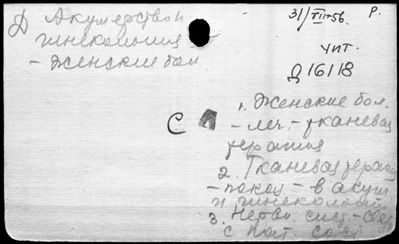 Д Акушерство и
гинекология
- Женские бол
31/XII-56. Р.
чит.
Д 16118
1. Женские бол.
- леч. - тканевая
терапия
С А
2. Тканевая терап
- показ - в акуш
и гинекологии
3. Нервн. сист. - свяь
с пат. сост